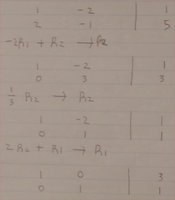 1 -2 | 1
2 -1 | 5
-2R₁ + R₂ → R₂
1 -2 | 1
0 3 | 3
1/3 R₂ → R₂
1 -2 | 1
0 1 | 1
2R₂ + R₁ → R₁
1 0 | 3
0 1 | 1